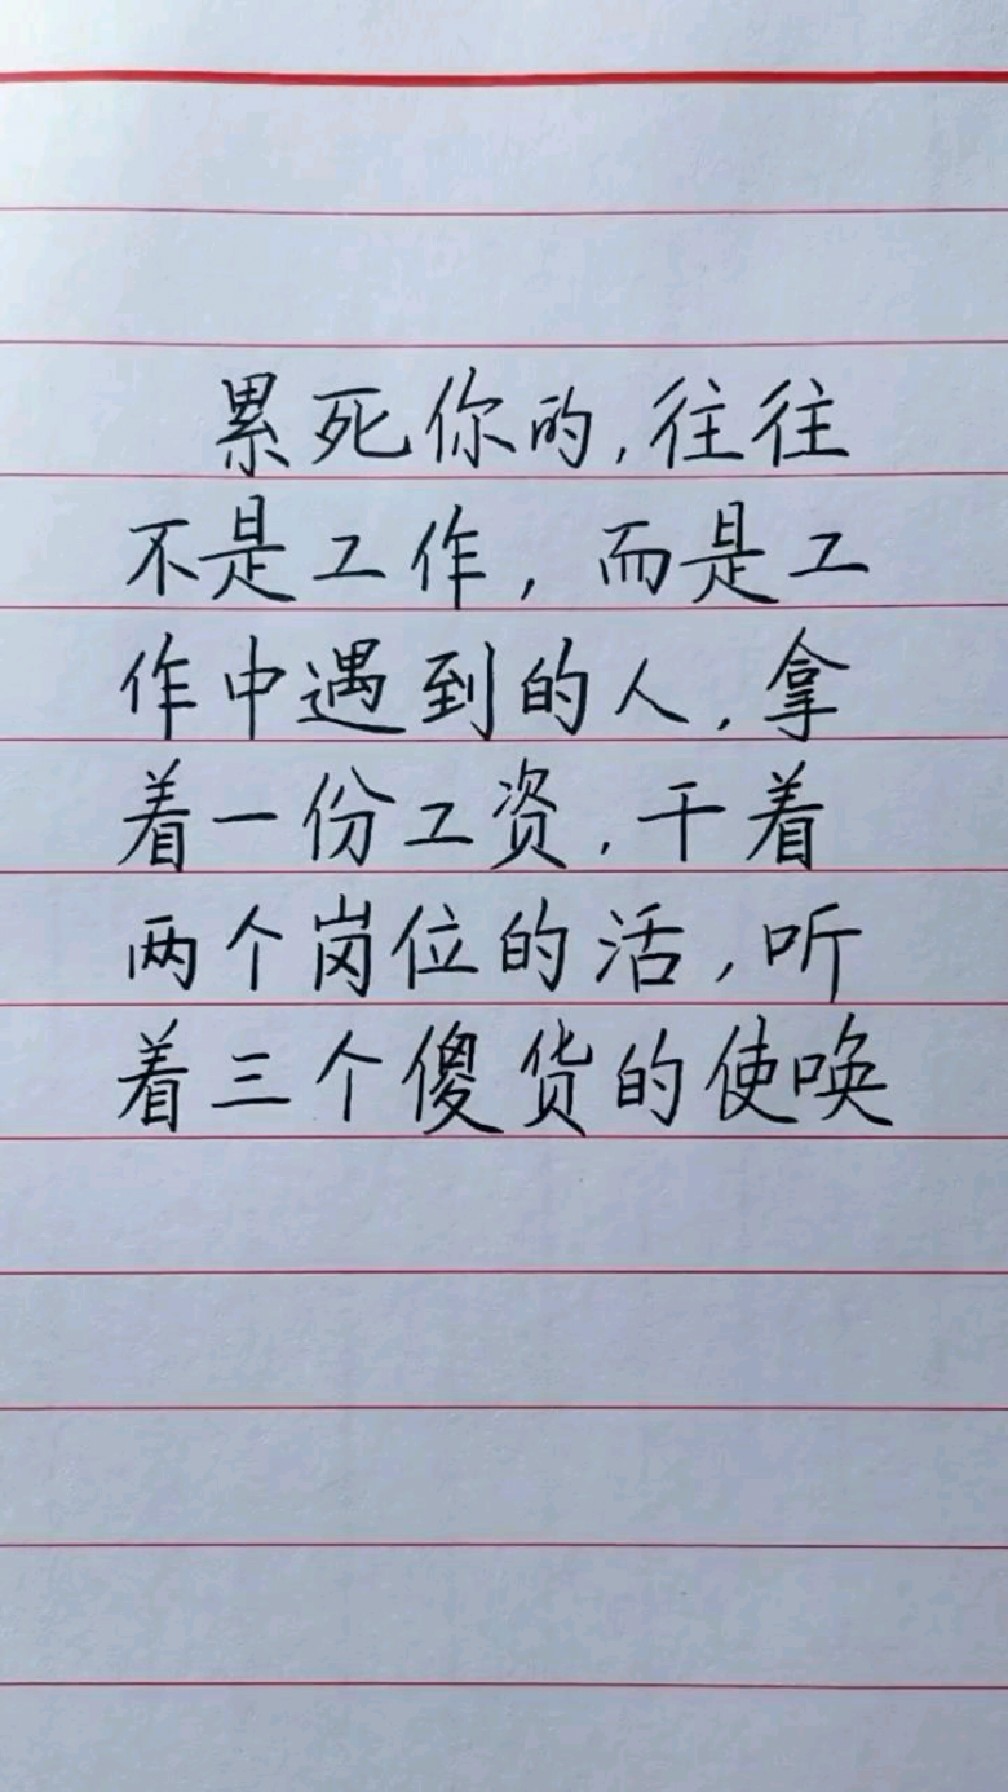 累死你的,往往
不是工作,而是工
作中遇到的人,拿
着一份工资,干着
两个岗位的活,听
着三个傻货的使唤